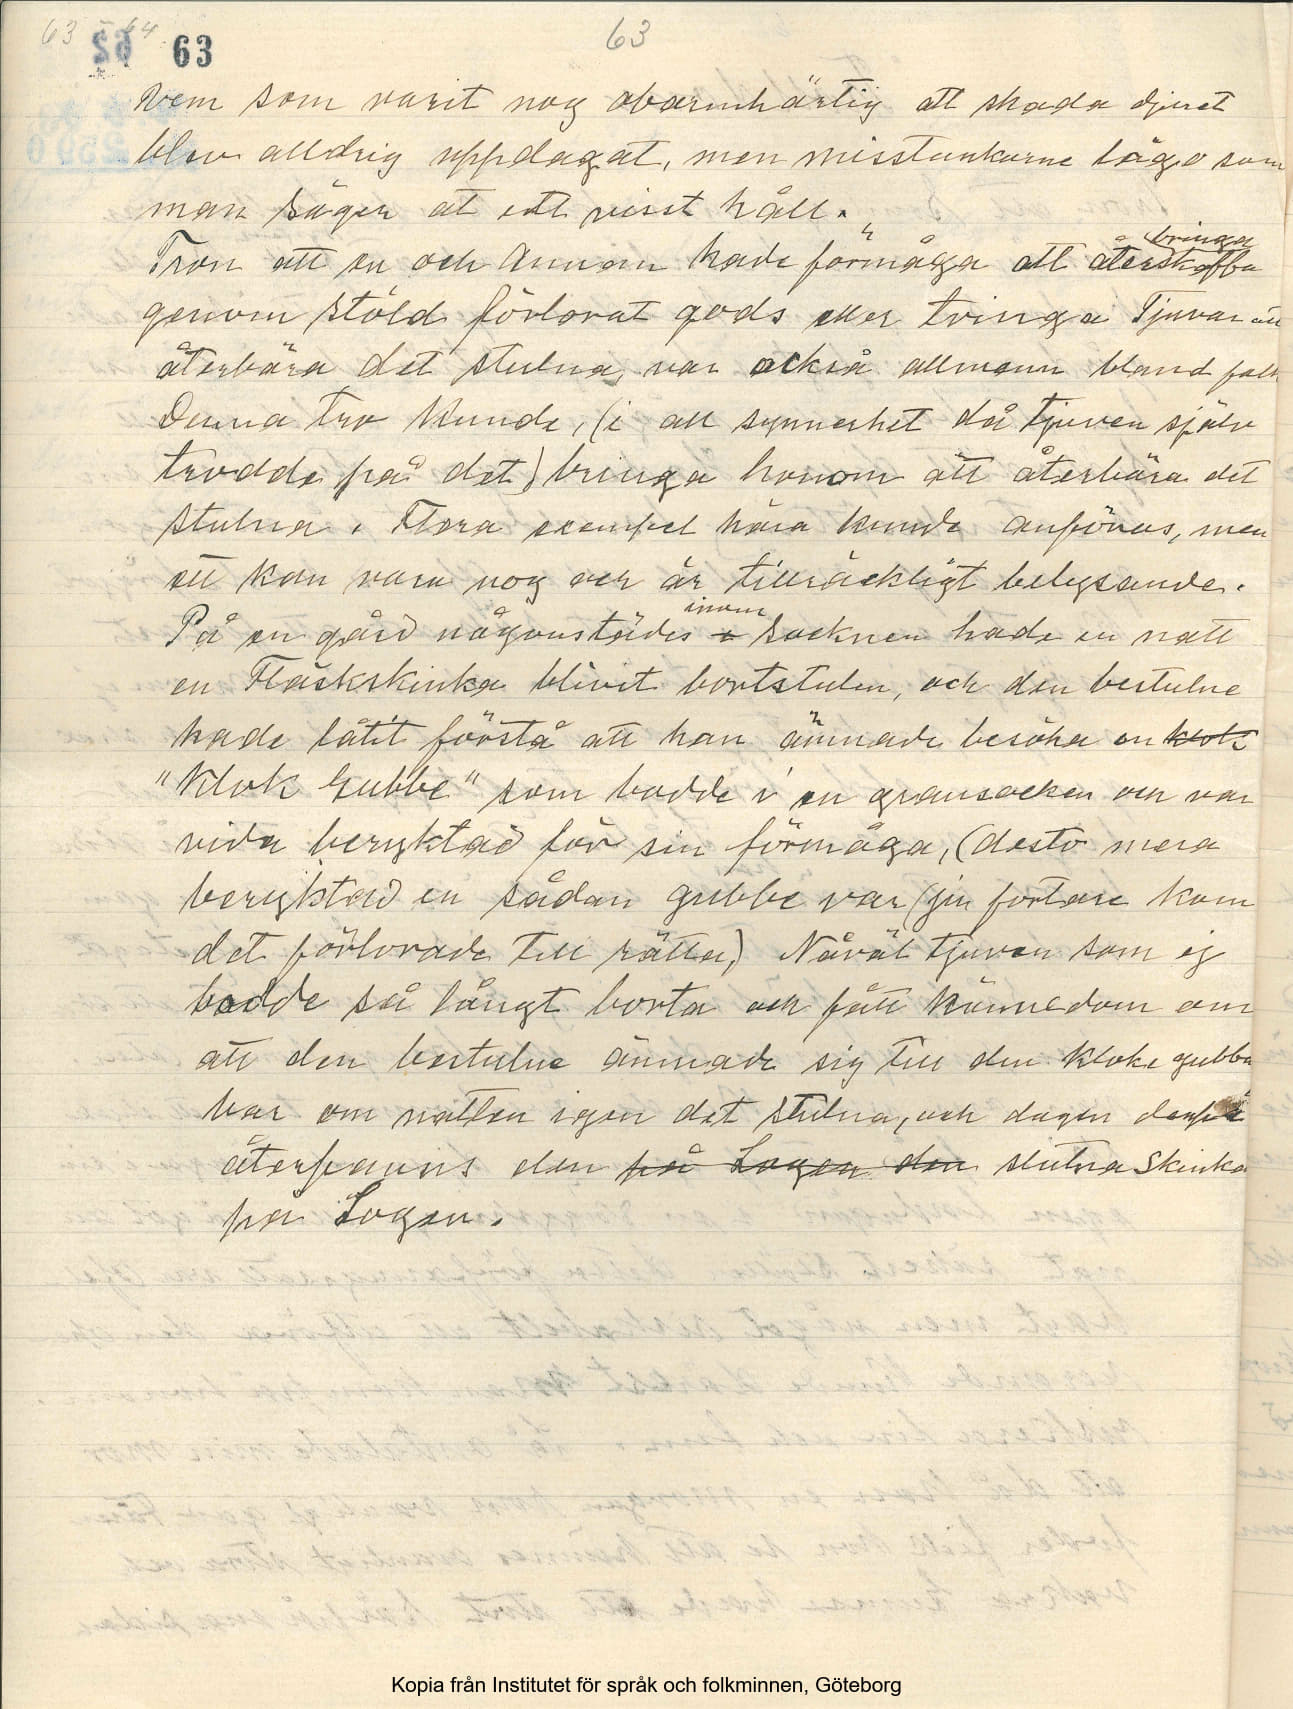 63 - 64
62 63
63
Vem som varit nog obarmhärtig att skada djuret
blev alldrig uppdagat, men misstankarne lågo som
man säger åt ett visst håll.
bringa
Tron att en och Annan hade förmåga att återskaffa
genom stöld förlorat gods eller tvinga Tjuvar att
återbära det stulna, var också allmänn bland folk
Denna tro Kunde, (i all synnerhet då tjuven själv
trodde på det) bringa honom att återbära det
stulna. Flera exempel håra kunde anföras, men
ett kan vara nog och är tillräckligt belysande.
inom
På en gård någonstädes i socknen hade en natt
en Fläskskinka blivit bortstulen, och den bestulne
hade låtit förstå att han ämnade besöka en klok
"Klok Gubbe" som bodde i en gransocken och var
vida beryktad för sin förmåga, (desto mera
beryktad en sådan gubbe var (ju fortare kom
det förlorade till rätta) Nåväl tjuven som ej
bodde så långt borta och fått kännedom om
att den bestulne ämnade sig till den kloke gubben
bar om natten igen det stulna, och dagen derpå
återfanns den på Logen den stulna Skinka
på Logen.
Kopia från Institutet för språk och folkminnen, Göteborg